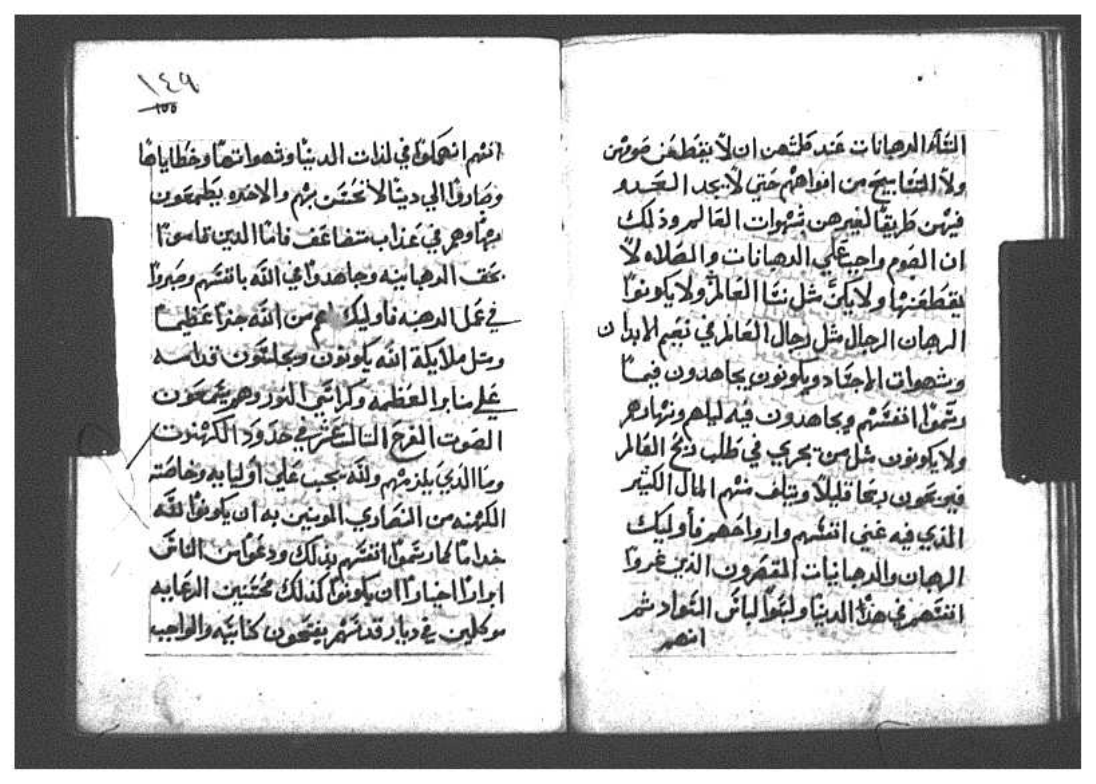 النساء الرهبانات عند كلمتهن ان لا يقطعن صومهن
ولا التسابيح من افواههم حتي لا يجد العدو
فيهن طريقا لغيرهن بشهوات العالم وذلك
ان الصوم واجب علي الرهبانات والصلاه لا
يقطعنها ولا يكن مثل نسا العالم ولا يكونوا
الرهبان الرجال مثل رجال العالم في نعيم الابدان
وشهوات الاجساد ويكونون يجاهدون فيما
رسموا انفسهم ويجاهدون فيه ليلهم ونهارهم
ولا يكونون مثل من يجري في طلب ربح العالم
فيربحون ربحا قليلا ويتلف منهم المال الكثير
الذي فيه غني انفسهم وارواحهم فاوليك
الرهبان والرهبانيات المقصرون الذين غروا
انفسهم في هذا الدنيا ولبسوا لباس السواد ثم
انهم
١٤٩
١٥٥
انهم انهمكوا في لذات الدنيا وشهواتها وخطاياها
وصاروا الي دينا لا تحسن بهم والاخره يطمعون
بها وهم في عذاب متضاعف فاما الذين قاموا
بحق الرهبانيه وجاهدوا في الله بانفسهم وصبروا
في عمل الرهبنه فاوليك لهم من الله جزا عظيما
ومثل ملايكة الله يكونون ويجلسون قدامه
علي منابر العظمه وكراسي النور وهم يسمعون
الصوت الفرح الثالث عشر في حدود الكهنوت
وما الذي يلزمهم ولله يجب علي اوليايه وخاصته
الكهنه من النصاري المومنين به ان يكونوا لله
خداما كما رسموا انفسهم بذلك ودعوا من الناس
ابرارا اخيارا ان يكونوا كذلك محسنين الرعايه
موكلين في ديار قدسهم يفتحون كنايسه والواجب